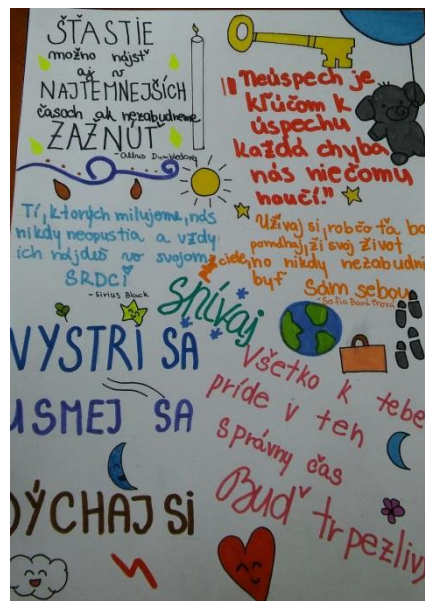 ŠŤASTIE
možno nájsť
aj v
NAJTEMNEJŠÍCH
časoch ak nezabudneme
ZAŽNÚŤ
- Albus Dumbledore
"Neúspech je
kľúčom k
úspechu
každá chyba
nás niečomu
naučí."
Tí, ktorých milujeme, nás
nikdy neopustia a vždy
ich nájdeš vo svojom
SRDCI
- Sirius Black
Užívaj si, rob čo ťa ba
pomáhaj, ži svoj život
z ciele, no nikdy nezabudni
byť
Sám sebou
- Sofia
Spievaj
VYSTRI SA
USMEJ SA
DÝCHAJ SI
Všetko k tebe
príde v ten
správny čas
Buď trpezlivý